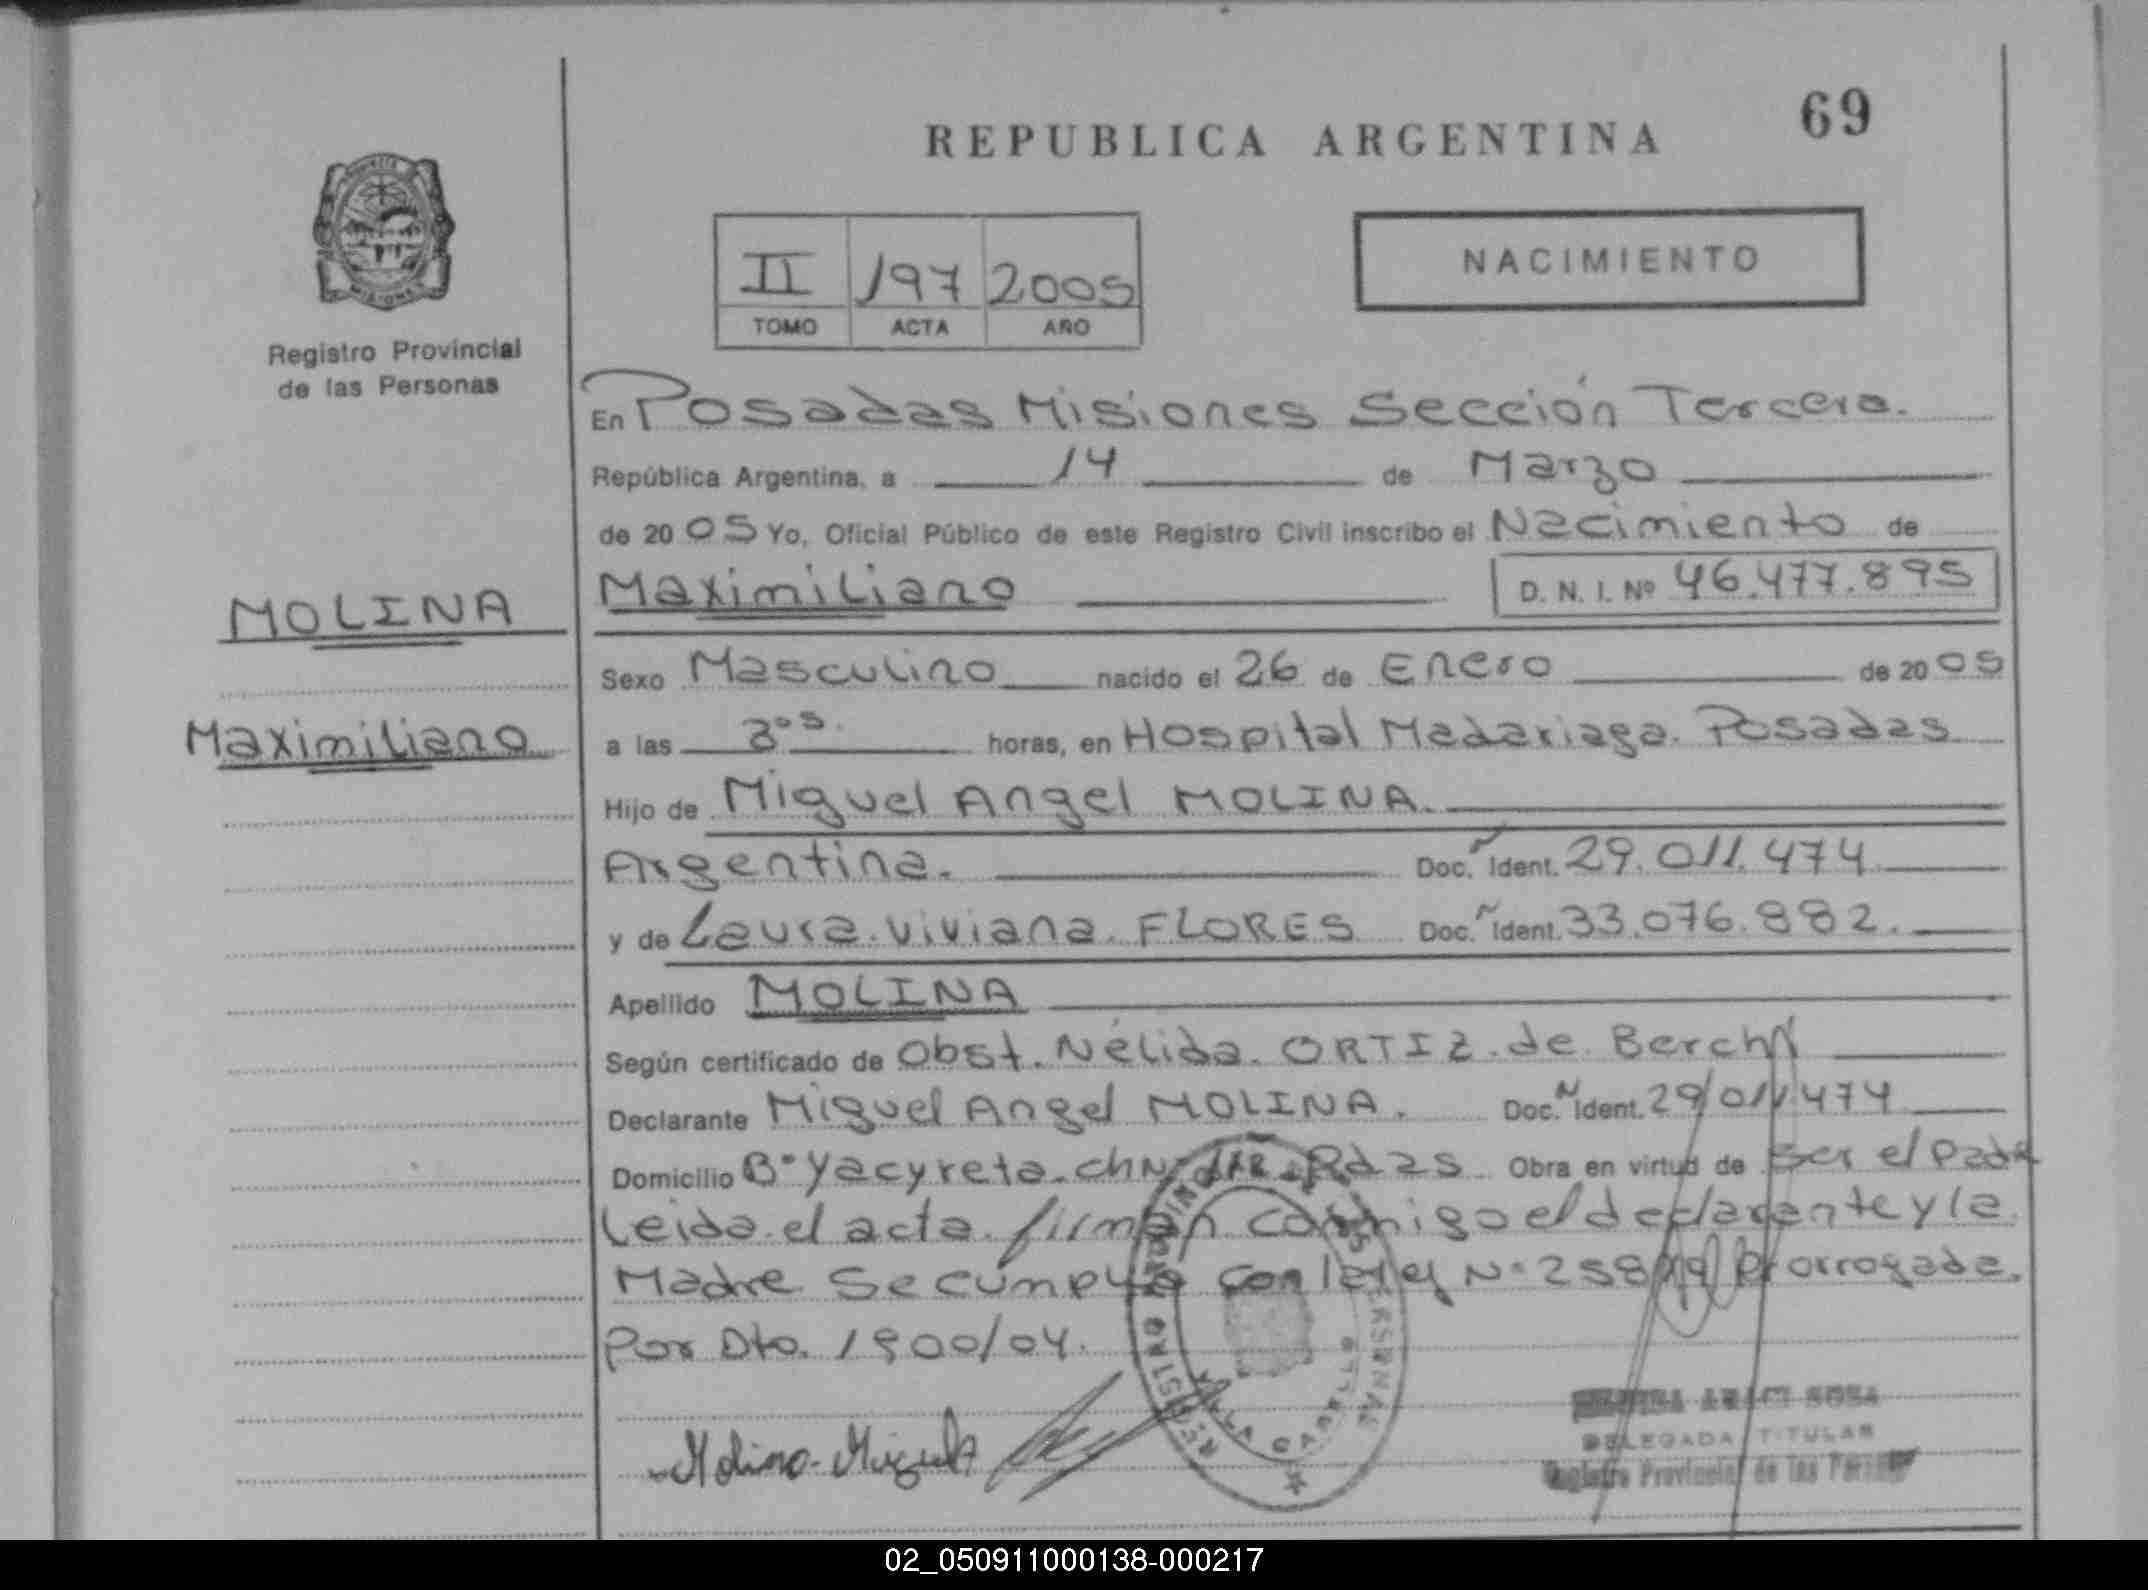 69
REPUBLICA ARGENTINA
NACIMIENTO
II 197 2005
TOMO ACTA AÑO
Registro Provincial
de las Personas
En Posadas Misiones Sección Tercera.
República Argentina, a 14 de Marzo
de 2005 Yo, Oficial Público de este Registro Civil inscribo el Nacimiento de
MOLINA
Maximiliano D. N. I. Nº 46.477.895
Sexo Masculino nacido el 26 de Enero de 2005
Maximiliano
a las 3os. horas, en Hospital Madariaga. Posadas
Hijo de Miguel Angel MOLINA.
Argentina. Doc. N Ident. 29.011.474
y de Laura Viviana FLORES Doc. N Ident. 33.076.882.
Apellido MOLINA
Según certificado de Obst. Nélida ORTIZ de Berchi
Declarante Miguel Angel MOLINA. Doc. N Ident. 29/011474
Domicilio Bº Yacyreta. Obra en virtud de Ser el Padre
Leida el acta firman conmigo el declarante y la
Madre Se cumple con la Ley Nº Prorrogada.
Por Dto. 1900/04.
Molina Miguel A
REGISTRO PERSONAS
VILLA CABELLO
ARACI SOSA
DELEGADA TITULAR
Registro Provincial de las Personas
MISIONES
02_050911000138-000217